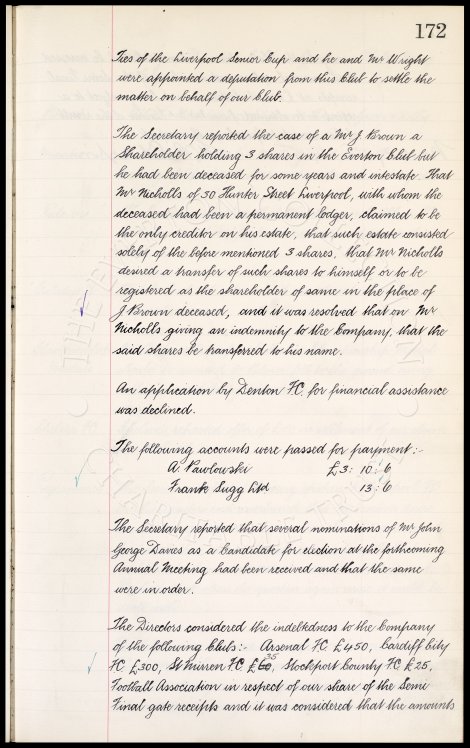 172
Ties of the Liverpool Senior Cup and he and Mr Wright
were appointed a deputation from this Club to settle the
matter on behalf of our Club.
The Secretary reported the case of a Mr J Brown a
Shareholder holding 3 shares in the Everton Club but
he had been deceased for some years and intestate. That
Mr Nicholls of 30 Hunter Street Liverpool, with whom the
deceased had been a permanent lodger, claimed to be
the only creditor on his estate, that such estate consisted
solely of the before mentioned 3 shares, that Mr Nicholls
desired a transfer of such shares to himself or to be
registered as the shareholder of same in the place of
J Brown deceased, and it was resolved that on Mr
Nicholls giving an indemnity to the Company, that the
said shares be transferred to his name.
An application by Denton FC. for financial assistance
was declined.
The following accounts were passed for payment :-
A. Pawlowski £3 : 10 : 6
Frank Sugg Ltd 13 : 6
The Secretary reported that several nominations of Mr John
George Davies as a Candidate for election at the forthcoming
Annual Meeting had been received and that the same
were in order.
The Directors considered the indebtedness to the Company
of the following Clubs :- Arsenal FC £450, Cardiff City
FC £300, St Mirren FC £60, 35 Stockport County FC £25,
Football Association in respect of our share of the Semi
Final gate receipts and it was considered that the amounts